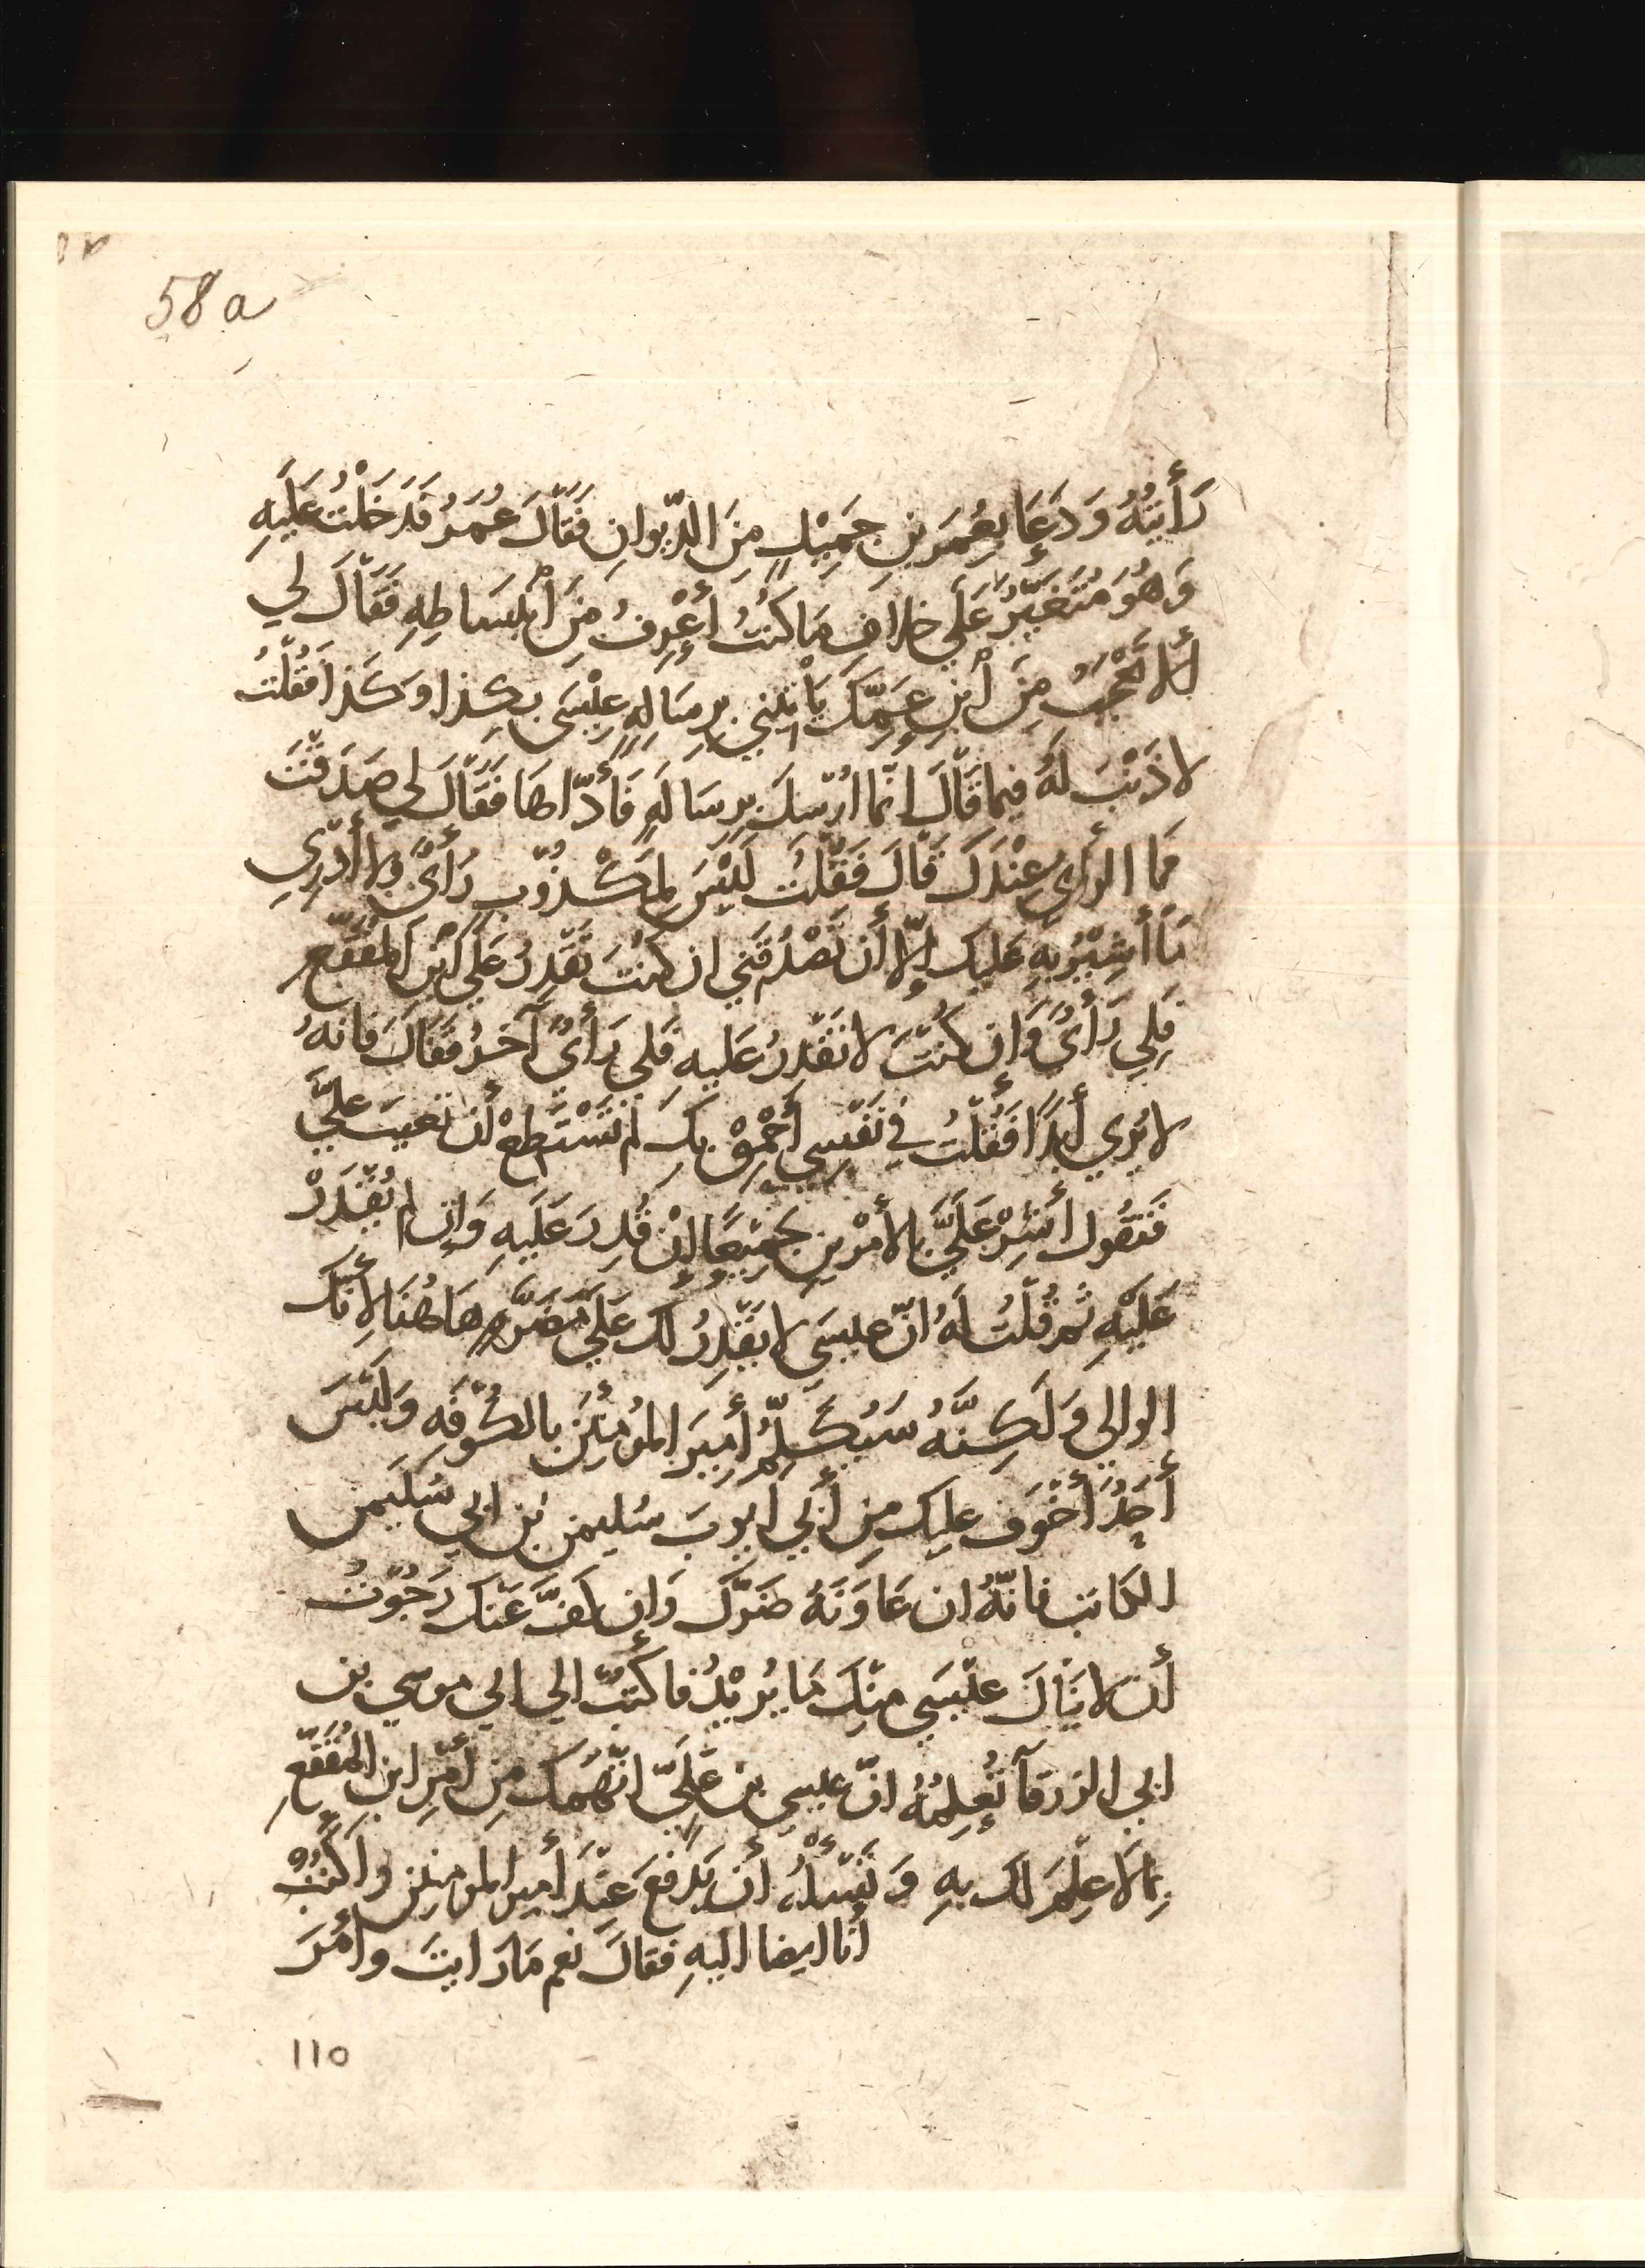 58a
رَأَيْتُهُ وَدَعَا بِعُمَرَ بنِ جَمِيْلٍ مِنَ الدّيوانِ فَقَالَ عُمَرُ فَدَخَلْتُ عَلَيهِ
وَهُوَ مُتَغَيِّرٌ عَلَي خلافِ مَا كنتُ أعْرِفُ مِنَ أنْبسَاطِهِ فَقَالَ لي
ألا تَعْجَبُ مِنَ أبْنِ عَمِّكَ يَأتِيْني بِرِسَالةِ عِيْسَى بكذا وكَذا فَقُلْتُ
لا ذَنْبَ لَهُ فيما قَالَ انّما ارْسِلَ بِرِسَالَةٍ فَأدّاهَا فَقَالَ لي صَدَقْتَ
فَمَا الرَأي عِنْدَكَ قَالَ فَقُلْتُ لَيْسَ لِمَكْذوْبٍ رَأيٌ ولا أدْرِي
مَا أُشِيْرُ بِهِ عَليك إلّا أن تَصْدُقَني ان كنتَ تَقْدِرُ عَلَي ابْنِ المقَفّعِ
فَلِي رَأيٌ وَإن كُنْتَ لا تَقْدِرُ عَليه فَلِي رَأيٌ آخَرُ فَقَالَ فانهُ
لا يُرَي أبَدًا فَقُلْتُ في نَفْسِي أَحْمِقْ بِكَ لم تَسْتَطِعْ أن تعيبَ عليَّ
فَتَقُول أشِرْ عَلَيَّ بالأمْرينِ جَمِيْعًا إنْ قُدِرَ عَلَيهِ وَإن لم يُقْدَرْ
عَلَيْهِ ثم قُلْتُ لَهُ انّ عيسَي لا يَقْدِرُ لك عَلَي مَضَرَّةٍ هَاهُنَا لأنّك
الوالي وَلَكِنَّهُ سَيُكَلِّمُ أَمِيَر المُؤمِنِيْنَ بالكُوفَهِ وَلَيْسَ
أحَدٌ أخْوَف عليك مِن أبي أيوبَ سُليمن بن ابي سُلَيمن
الكاتب فانّهُ ان عَاوَنَهُ ضَرَّكَ وَإن كفَّ عَنْك رَجَوْتُ
أن لا يَنَالَ عيْسَي منْكَ مَا يُرِيْدُ فاكْتُبْ الي ابي موسي بن
ابي الزرقآ تُعْلِمُهُ انّ عيسي بن عَلِيّ اتّهَمَك مِن أمْرِ ابنِ المُقَفّعِ
بِمَا لا عِلْمَ لك بهِ وَتَسْألُهُ أن يَدْفعَ عِنْدَ أمير المؤمنين وأكْتُبُ
أنا ايضا اليهِ فقالَ نعم مَا رَايتَ وأمَرَ
110